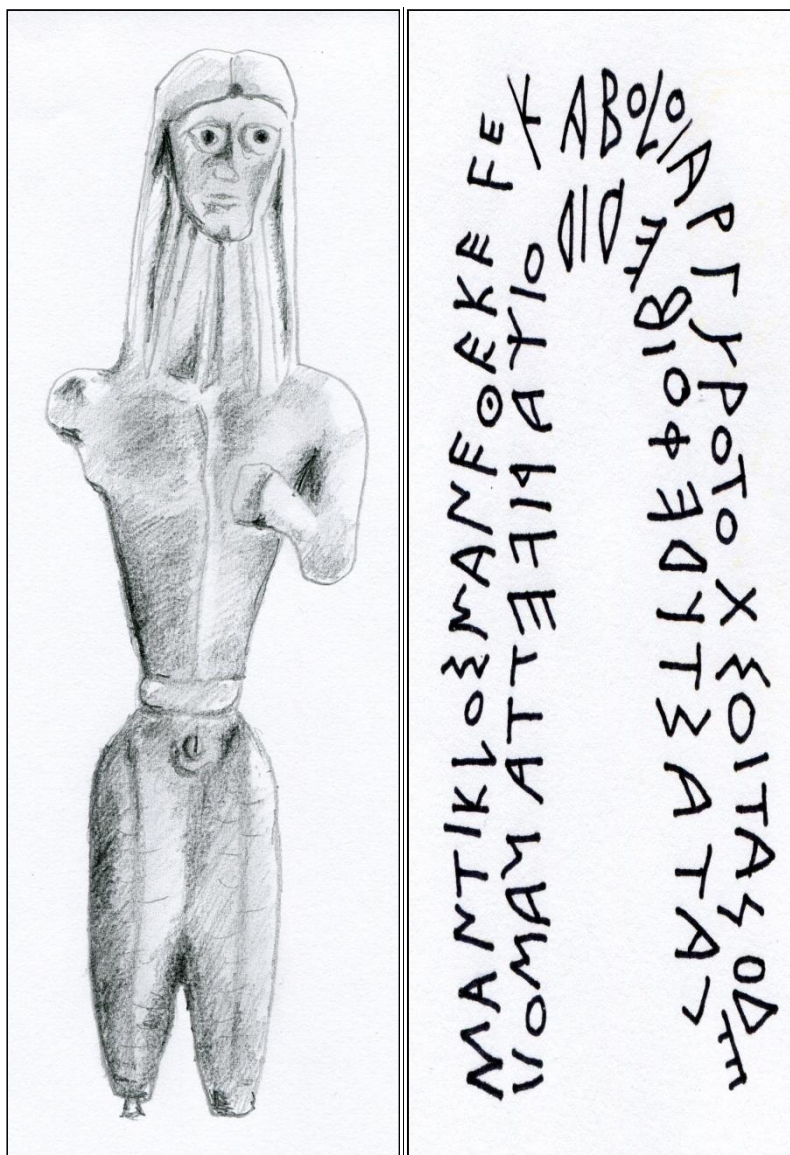 ΜΑΝΤΙΚΛΟΣΜΑΝΕΘΕΚΕϜΕΚΑΒΟΛΟΙΑΡΓΥΡΟΤΟΧΣΟΙΤΑΣΟΔΕ
ΚΑΤΑΣΤΥΔΕΦΟΙΒΕΔΙΔΟΙΧΑΡΙϜΕΤΤΑΝΑΜΟΙ